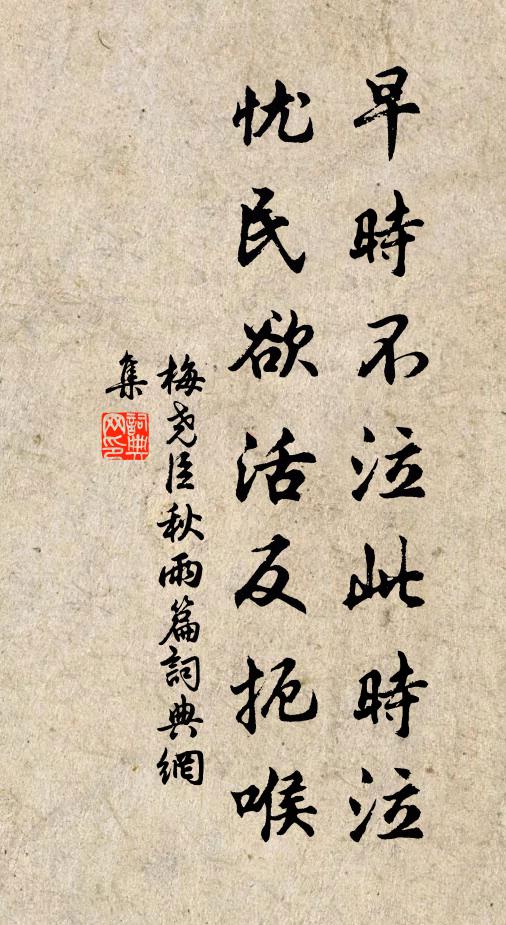 早時不泣此時泣
忧民欲活反扼喉
梅尧臣秋雨篇詞典網
集
詞典网印